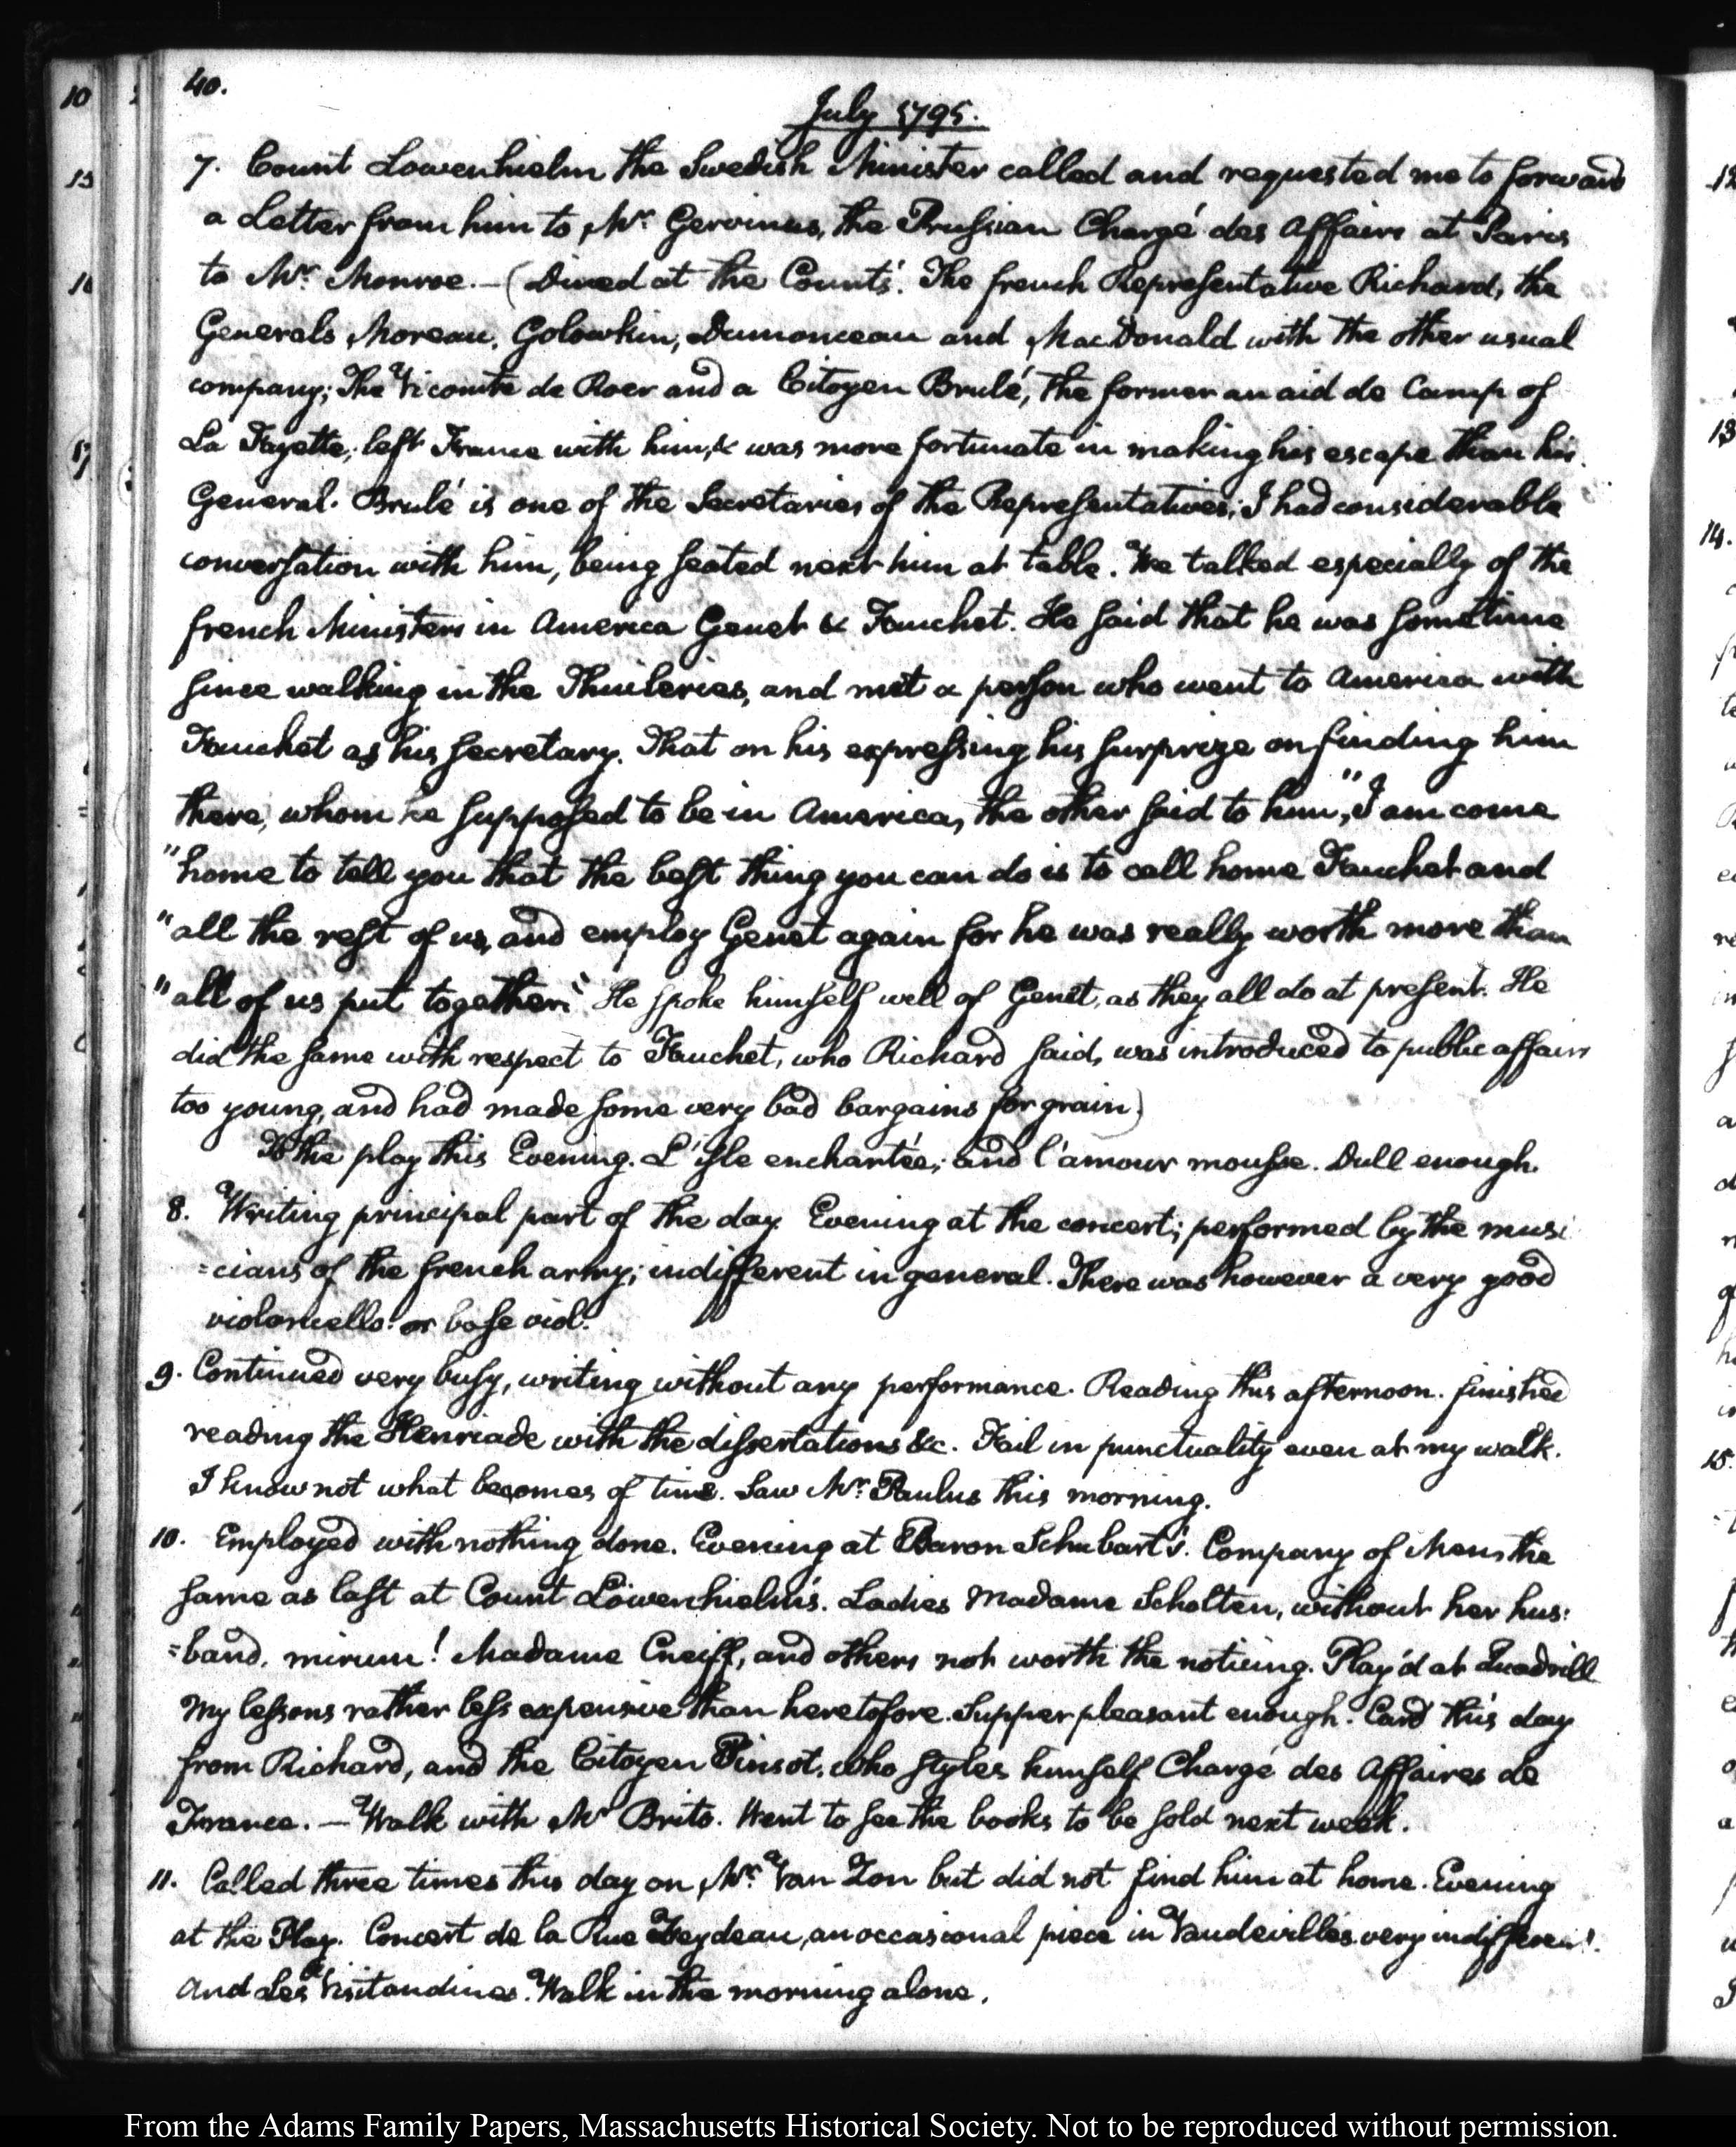 40.
July 1795.
7. Count Lowenhielm the Swedish Minister called and requested me to forward
a Letter from him to Mr. Gervinus, the Prussian Chargé des Affairs at Paris
to Mr. Monroe. — (Dined at the Counts'. The french Representative Richard, the
Generals Moreau, Golowkin, Dumonceau and MacDonald with the other usual
company; The Vicomte de Roer and a Citoyen Brulé, the former an aid de Camp of
La Fayette, left France with him, & was more fortunate in making his escape than his
General. Brulé is one of the Secretaries of the Representatives; I had considerable
conversation with him, being seated next him at table. We talked especially of the
french Ministers in America Genet & Fauchet. He said that he was sometime
since walking in the Thuileries, and met a person who went to America with
Fauchet as his secretary. That on his expressing his surprize on finding him
there, whom he supposed to be in America, the other said to him, "I am come
"home to tell you that the best thing you can do is to call home Fauchet and
"all the rest of us, and employ Genet again for he was really worth more than
"all of us put together." He spoke himself well of Genet, as they all do at present. He
did the same with respect to Fauchet, who Richard said, was introduced to public affairs
too young, and had made some very bad bargains for grain)
To the play this Evening. L'isle enchantée; and l'amour mousse. Dull enough.
8. Writing principal part of the day. Evening at the concert; performed by the musi
=cians of the french army; indifferent in general. There was however a very good
violoncello: or base viol.
9. Continued very busy, writing without any performance. Reading this afternoon. finished
reading the Henriade with the dissertations &c. Fail in punctuality even at my walk.
I know not what becomes of time. Saw Mr. Paulus this morning.
10. Employed with nothing done. Evening at Baron Schubart's. Company of Men, the
same as last at Count Löwenhielm's. Ladies Madame Scholten, without her hus:
=band, mirum! Madame Cneiff, and others not worth the noticing. Play'd at Quadrill
My lessons rather less expensive than heretofore. Supper pleasant enough. Card this day
from Richard, and the Citoyen Pinsot, who styles himself Chargé des Affaires de
France. — Walk with Mr Brito. Went to see the books to be sold next week.
11. Called three times this day on Mr. Van Son but did not find him at home. Evening
at the Play. Concert de la Rue Feydeau, an occasional piece in Vaudevilles very indifferent.
And Les Visitandines. Walk in the morning alone.
10
13
16
17
12
13
14.
15.
From the Adams Family Papers, Massachusetts Historical Society. Not to be reproduced without permission.